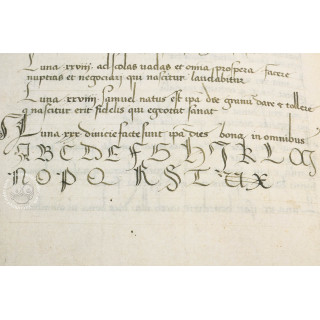 Luna xxviij ad scolas vadas et omnia prospera facere
nuptias et negociari qui nascitur laudabitur
Luna xxviiij samuel natus est ipa die granu dare et tollere
nascitur erit fidelis qui egrotat sanat
Luna xxx diuicie facte sunt ipa dies bona in omnibus
A B C D E F G H J K L M
N O P Q R S T U X